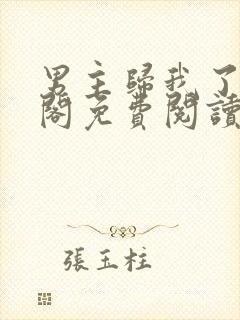 男主歸我了
閣免費閱讀
張玉柱